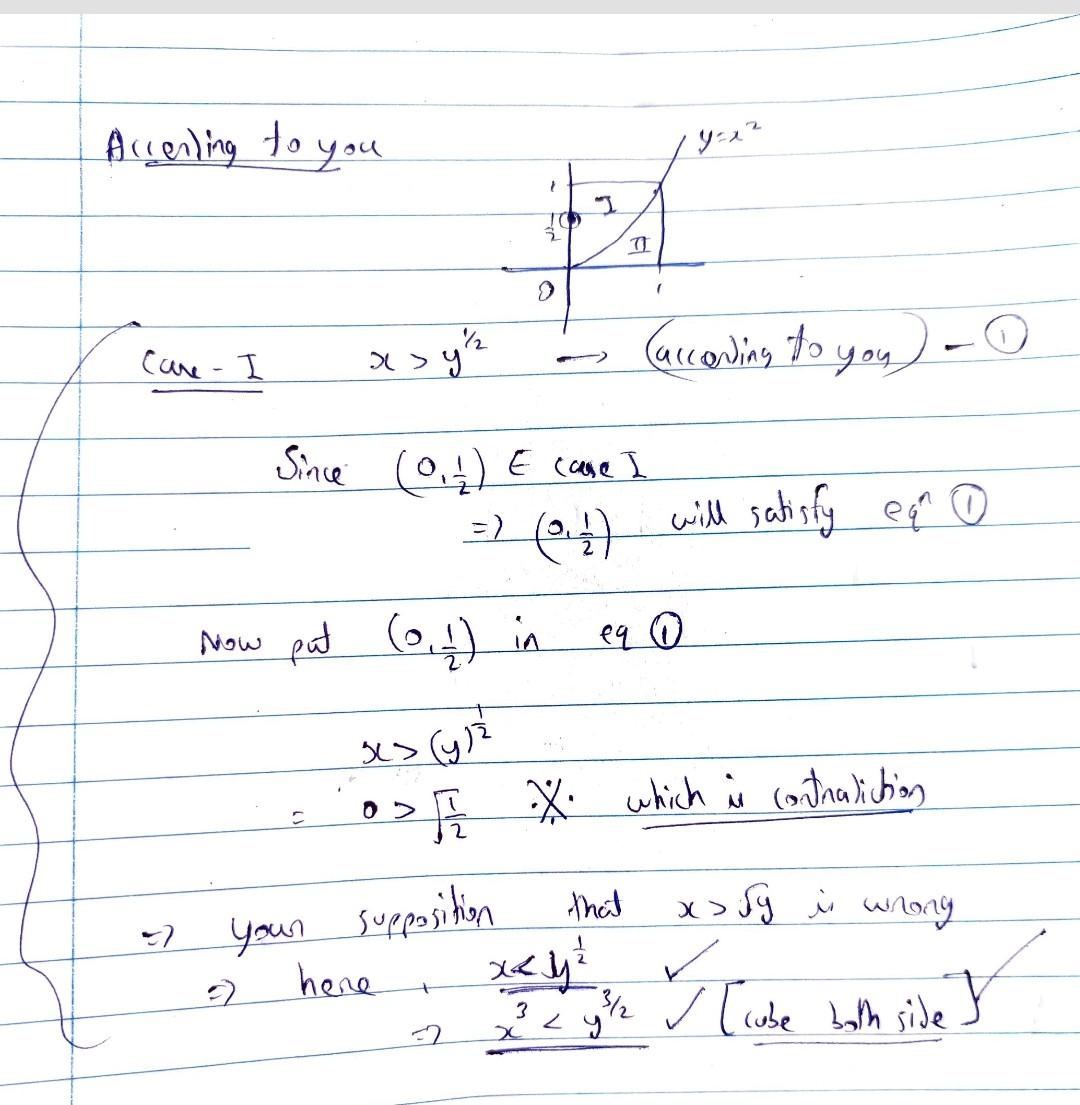 According to you
y=x²
1
I
1/2
II
0
1
Case - I x > y^1/2 → (according to you) - ①
Since (0, 1/2) ∈ case I
=> (0, 1/2) will satisfy eqⁿ ①
Now put (0, 1/2) in eq ①
x > (y)^1/2
= 0 > √1/2 ※ which is contradiction
=> your supposition that x > √y is wrong
=> here, x < y^1/2 ✓
=> x³ < y^3/2 ✓ [cube both side] ✓